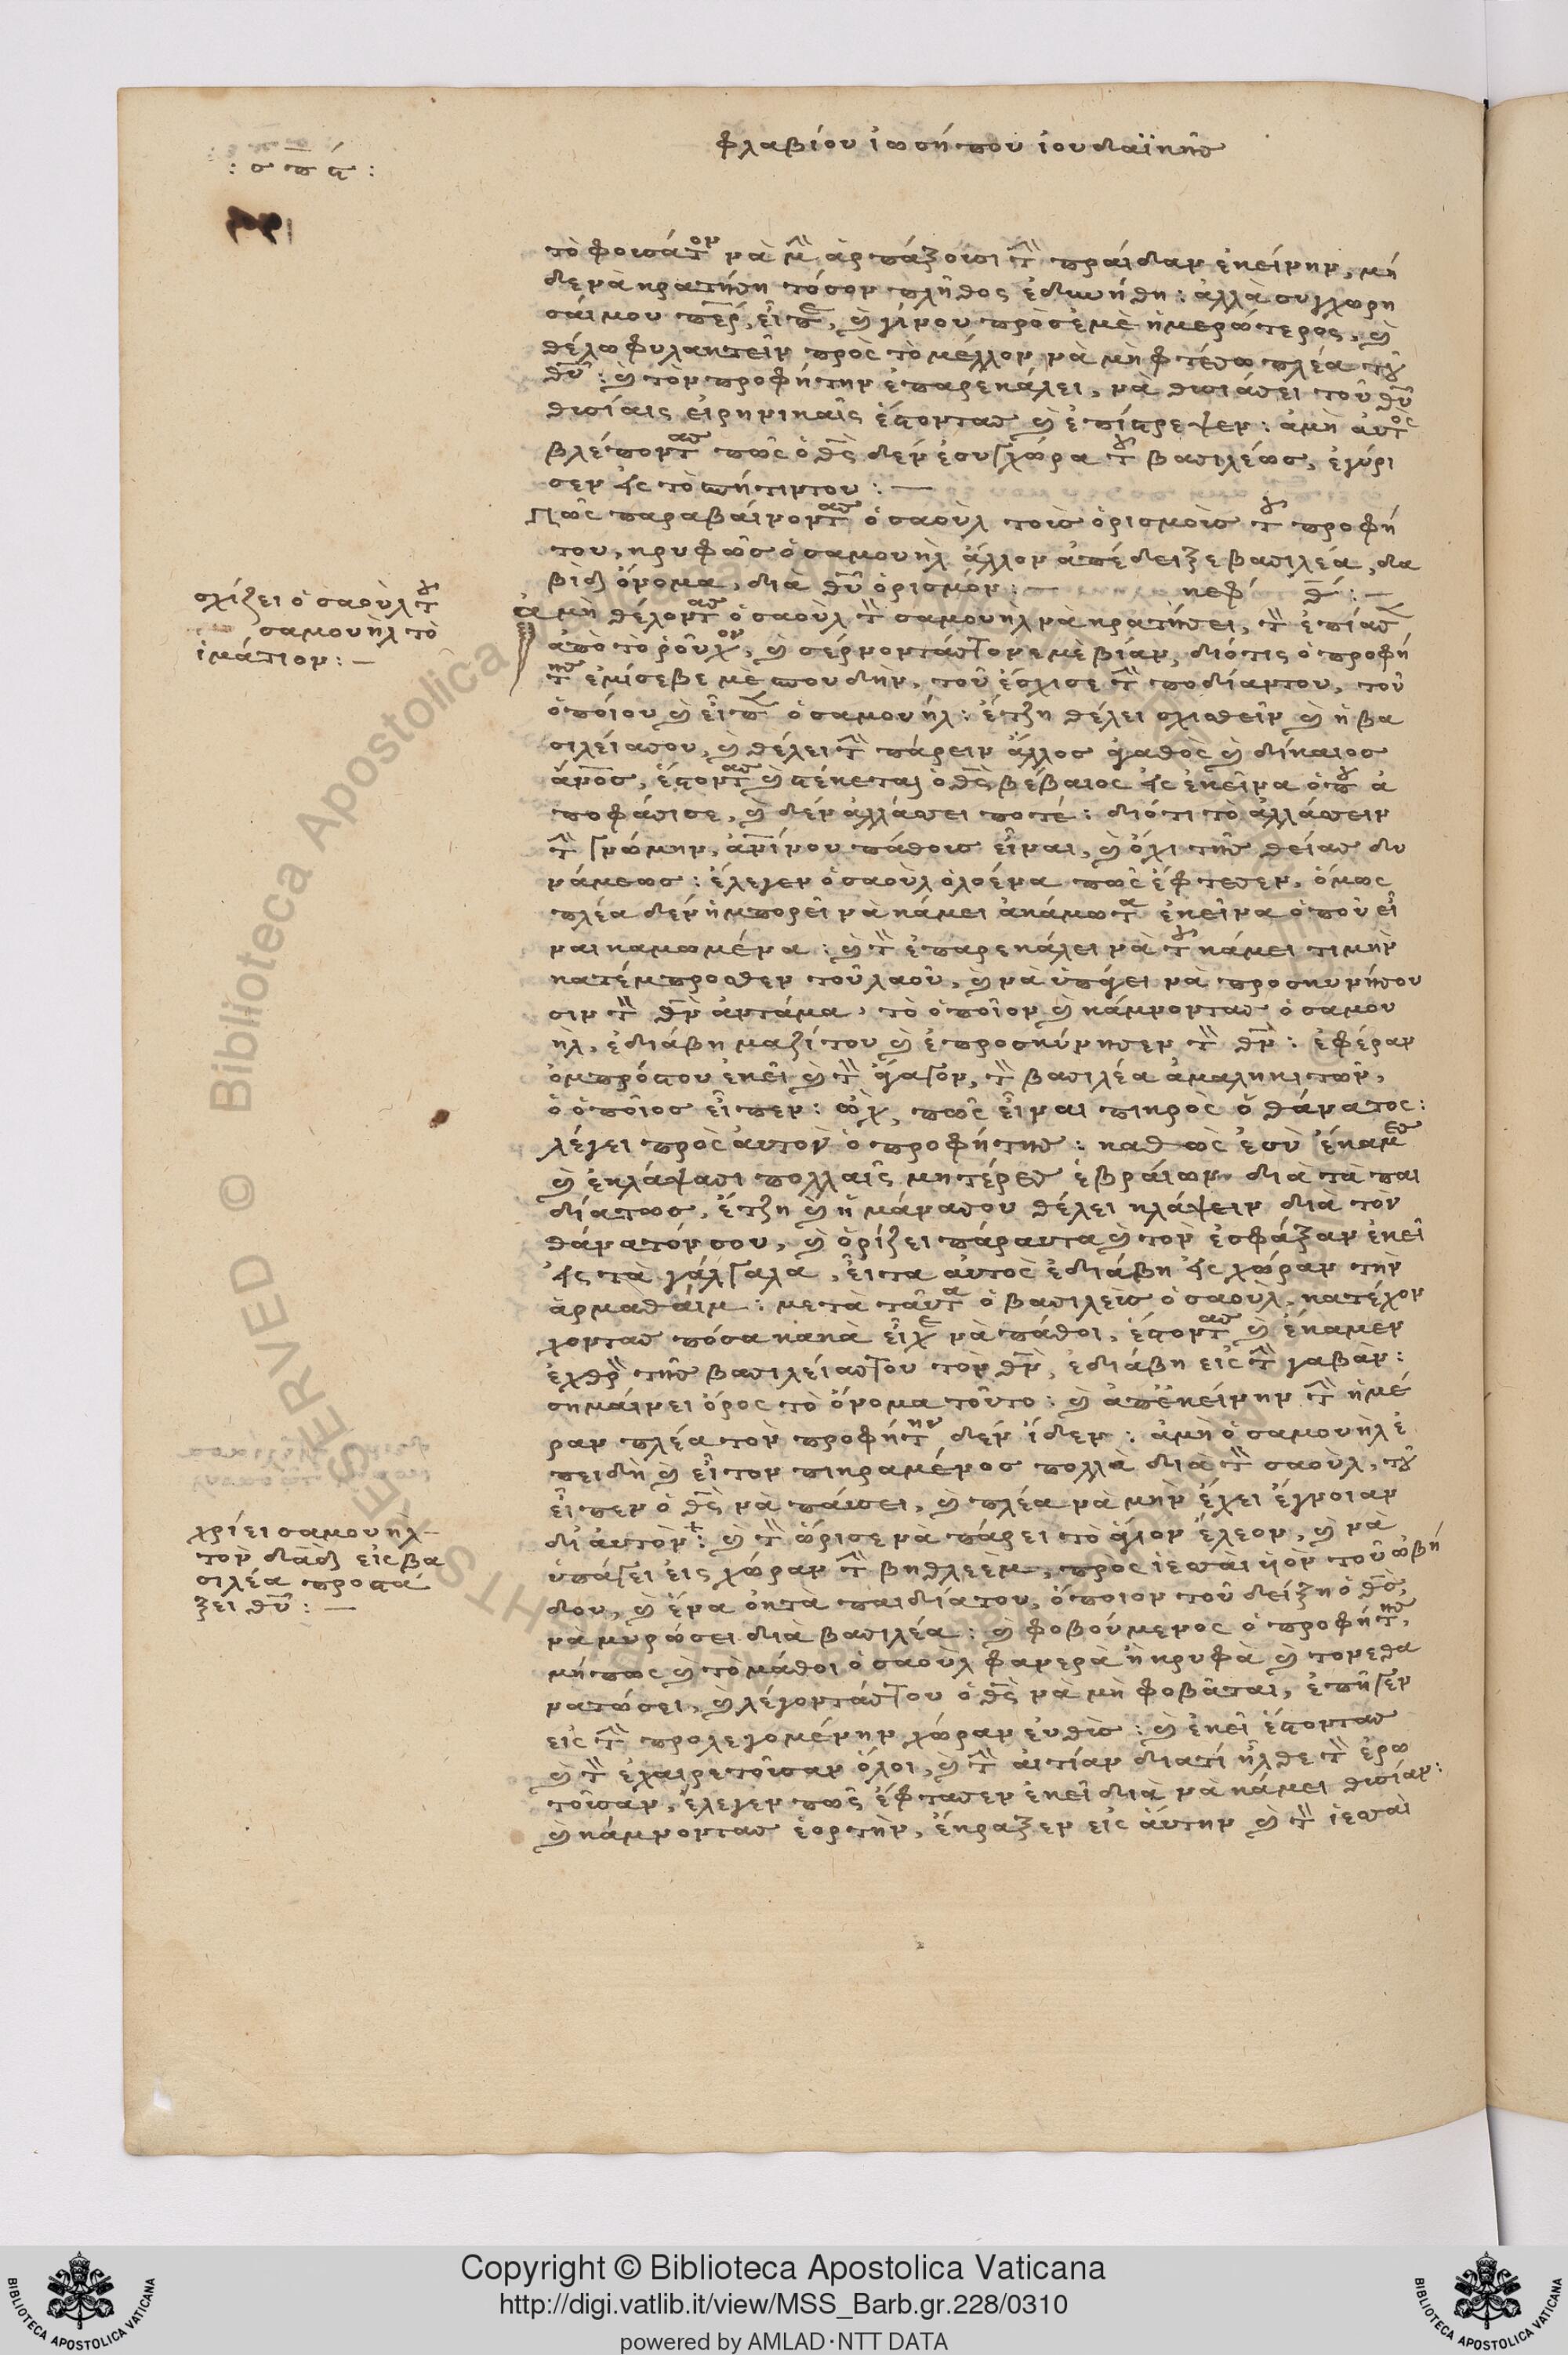 φλαβίου ἰωσήπου ἰουδαϊκῆς
: σπϛ :
τὸ φουσάτον νὰ μὴν ἁρπάξουσι τὴν πραίδαν ἐκείνην, μή
δε νὰ κρατήση τόσον πλῆθος ἐδιωήθη : ἀλλὰ συγχωρη
σαί μου πάτερ, εἶπε, καὶ γίνου πρὸς ἐμὲ ἡμερώτερος, καὶ
θέλω φυλακτεῖν πρὸς τὸ μέλλον νὰ μὴ φτέσω πλέα τοῦ
θῦ : καὶ τὸν προφήτην ἐπαρεκάλει, νὰ θυσιάσει τοῦ θῦ
θυσίαις εἰρηνικαῖς ἔστοντας καὶ ἐπίστρεψεν : ἀμὴ αὐτὸς
βλέποντας πῶς ὁ θς δὲν ἐσυγχώρα τοῦ βασιλέως, ἐγύρι
σεν εἰς τὸ σπήτιν του : —
Πῶς παραβαίνοντας ὁ σαοὺλ τοὺς ὁρισμοὺς τοῦ προφή
του, κρυφῶς ὁ σαμουὴλ ἄλλον ἀπέδειξε βασιλέα, δα
βὶδ ὄνομα, διὰ θῦ ὁρισμόν : — κεφ θ : —
σχίζει ὁ σαοὺλ τοῦ
σαμουὴλ τὸ
ἱμάτιον : —
ἀμὴ θέλοντας ὁ σαοὺλ τὸν σαμουὴλ νὰ κρατήσει, τὸν ἐπίασε
ἀπὸ τὸ ροῦχον, καὶ σέρνοντάς τονε μὲ βίαν, διότις ὁ προφή
της ἐμίσεβε μὲ σπουδὴν, τοῦ ἔσχισε τὴν ποδίαν του, τοῦ
ὁποίου καὶ εἶπε ὁ σαμουήλ : ἔτζη θέλει σχισθεῖν καὶ ἡ βα
σιλεία σου, καὶ θέλει τὴν πάρειν ἄλλος ἀγαθὸς καὶ δίκαιος
ἄνος, ἔστοντας καὶ στέκεται ὁ θς βέβαιος εἰς ἐκεῖνα ὁποῦ ἀ
ποφάσισε, καὶ δὲν ἀλλάσσει ποτέ : διότι τὸ ἀλλάσσειν
τὴν γνώμην, ἀνίνου πάθους εἶναι, καὶ ὄχι τῆς θείας δυ
νάμεως : ἔλεγεν ὁ σαοὺλ ὁλοένα πῶς ἔφτεσεν, ὅμως
πλέα δὲν ἠμπορεῖ νὰ κάμει ἀκάμωτα ἐκεῖνα ὁποῦ εἶ
ναι καμωμένα : καὶ τὸν ἐπαρεκάλει νὰ τοῦ κάμει τιμὴν
κατέμπροσθεν τοῦ λαοῦ, καὶ νὰ ὑπάγει νὰ προσκυνήσου
σιν τὸν θν ἀντάμα, τὸ ὁποῖον καὶ κάμνοντας ὁ σαμου
ὴλ, ἐδιάβη μαζί του καὶ ἐπροσκύνησεν τὸν θν : ἐφέραν
ὀμπρός του ἐκεῖ καὶ τὸν ἄγαγον, τὸν βασιλέα ἀμαληκιτῶν,
ὁ ὁποῖος εἶπεν : ὢχ, πῶς εἶναι πικρὸς ὁ θάνατος :
λέγει πρὸς αὐτὸν ὁ προφήτης : καθὼς ἐσὺ ἔκαμες
καὶ ἐκλάψασι πολλαῖς μητέρες ἑβραίων διὰ τὰ παι
δία τως, ἔτζη καὶ ἡ μάνα σου θέλει κλάψειν διὰ τὸν
θάνατόν σου, καὶ ὁρίζει πάραυτα καὶ τὸν ἐσφάξαν ἐκεῖ
εἰς τὰ γάλγαλα, εἶτα αὐτὸς ἐδιάβη εἰς χώραν τὴν
ἁρμαθαίμ : μετὰ ταῦτα ὁ βασιλεὺς ὁ σαοὺλ, κατέχον
χοντας πόσα κακὰ εἶχε νὰ πάθοι, ἔστοντας καὶ ἔκαμεν
ἐχθρὸν τῆς βασιλείας του τὸν θν, ἐδιάβη εἰς τὴν γαβὰν :
σημαίνει ὄρος τὸ ὄνομα τοῦτο : καὶ ἀπ' ἐκείνην τὴν ἡμέ
ραν πλέα τὸν προφήτην δὲν ἴδεν : ἀμὴ ὁ σαμουὴλ ἐ
πειδὴ καὶ εἶτον πικραμένος πολλὰ διὰ τὸν σαοὺλ, τοῦ
εἶπεν ὁ θς νὰ παύσει, καὶ πλέα νὰ μὴν ἔχει ἔγνοιαν
χρίει σαμουὴλ
τὸν δαδ εἰς βα
σιλέα προστά
ξει θῦ : —
δι' αὐτόν : καὶ τὸν ὥρισε να πάρει τὸ ἅγιον ἔλεον, καὶ νὰ
ὑπάγει εἰς χώραν τὴν βηθλεὲμ, πρὸς ἰεσσαὶ υἱὸν τοῦ ὠβή
δου, καὶ ἕνα ὀκ τὰ παιδία του, ὅποιον τοῦ δείξη ὁ θς,
νὰ μυρώσει διὰ βασιλέα : καὶ φοβούμενος ὁ προφήτης,
μήπως καὶ τὸ μάθοι ὁ σαοὺλ φανερὰ ἢ κρυφὰ καὶ τον εθα
νατώσει, καὶ λέγοντάς του ὁ θς νὰ μὴ φοβᾶται, ἐπῆγεν
εἰς τὴν προλεγομένην χώραν εὐθὺς : καὶ ἐκεῖ ἔστοντας
καὶ τὸν ἐχαιρετοῦσαν ὅλοι, καὶ τὴν αἰτίαν διατί ἦλθε τὸν ἐρω
τοῦσαν, ἔλεγεν πῶς ἔφτασεν ἐκεῖ διὰ νὰ κάμει θυσίαν :
καὶ κάμνοντας ἑορτὴν, ἔκραξεν εἰς αὐτην καὶ τὸν ἰεσσαὶ
Copyright © Biblioteca Apostolica Vaticana
http://digi.vatlib.it/view/MSS_Barb.gr.228/0310
powered by AMLAD·NTT DATA